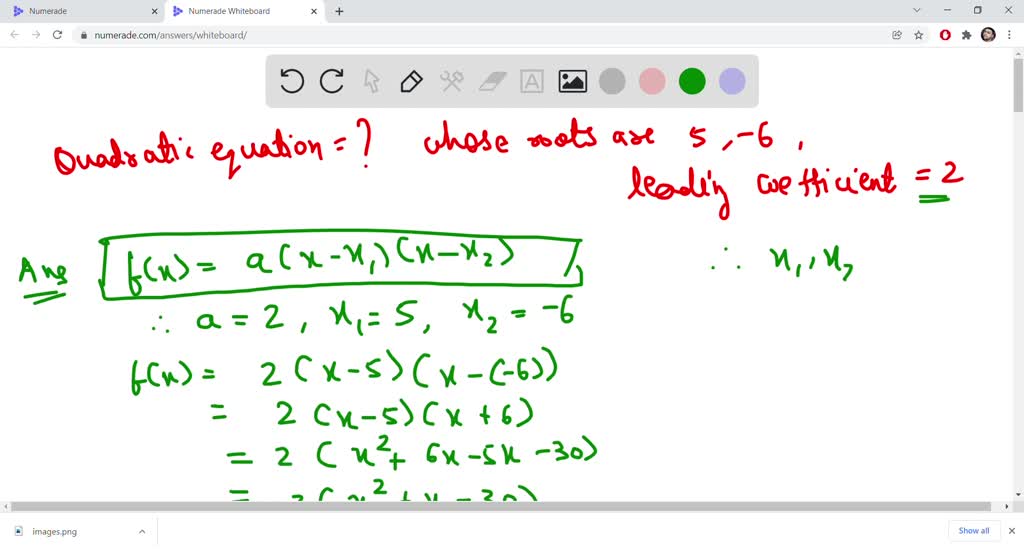 Numerade
Numerade Whiteboard
numerade.com/answers/whiteboard/
A
Quadratic equation = ? whose roots are 5, -6,
leading coefficient = 2
Ans f(x) = a(x-x₁)(x-x₂) ∴ x₁, x₂
∴ a = 2, x₁ = 5, x₂ = -6
f(x) = 2(x-5)(x-(-6))
= 2(x-5)(x+6)
= 2(x²+6x-5x-30)
= 2(x²+x-30)
images.png
Show all